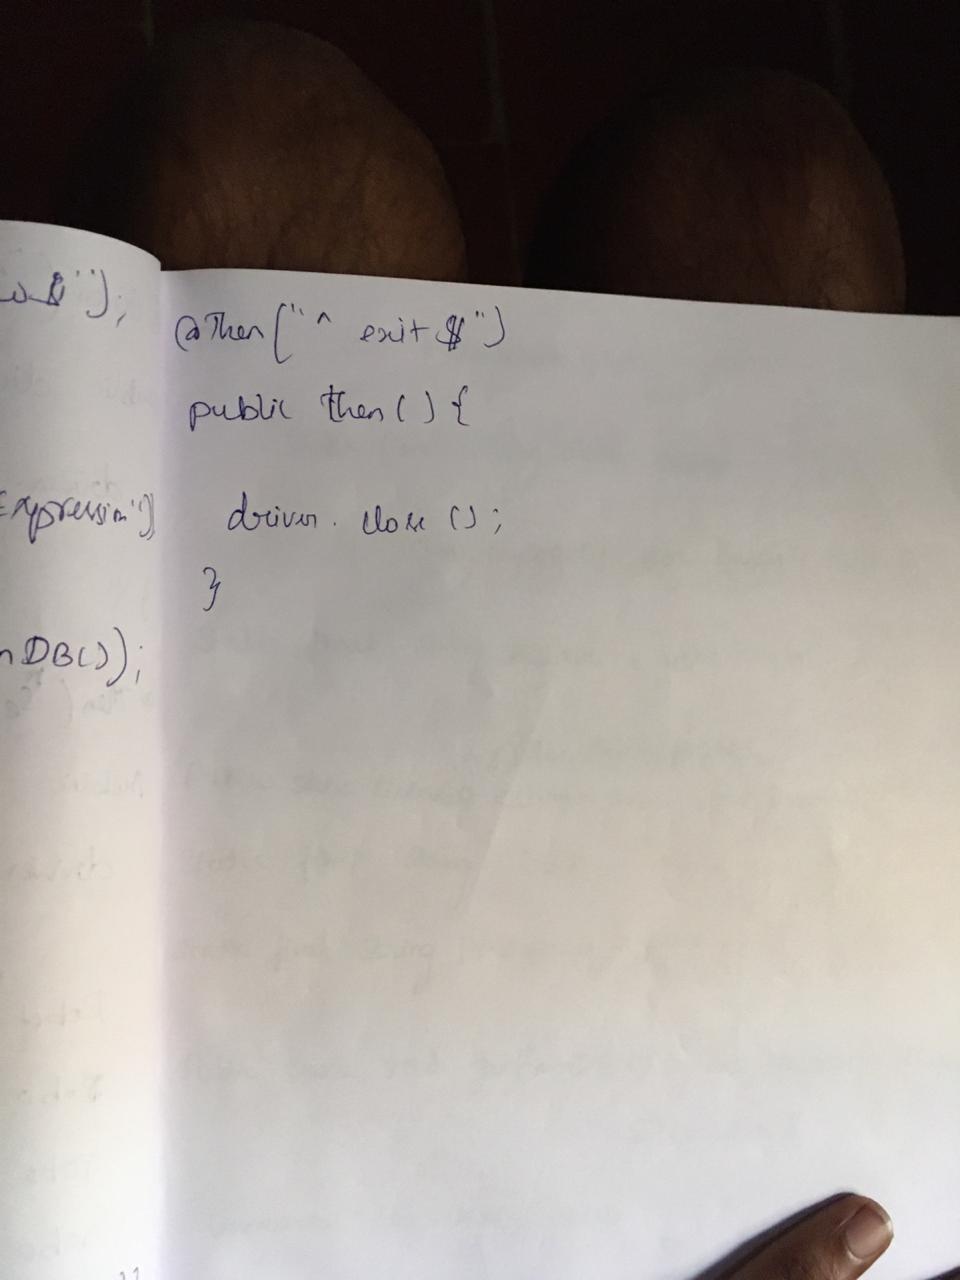 ");
Expression")
nDB());
@Then("^ exit $")
public then() {
driver. close ();
}